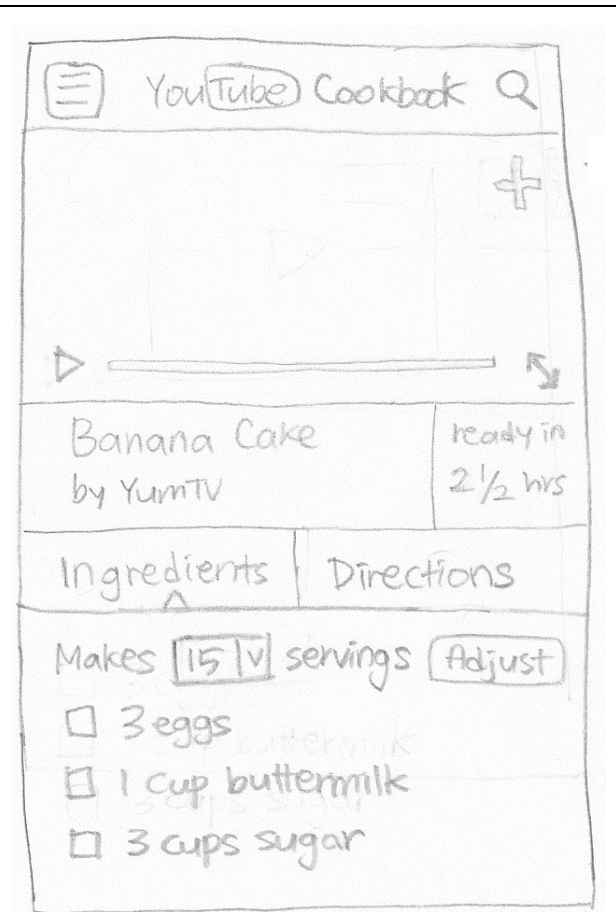 YouTube Cookbook
Banana Cake
by YumTV
ready in
2 1/2 hrs
Ingredients
Directions
Makes 15 v servings Adjust
3 eggs
1 cup buttermilk
3 cups sugar